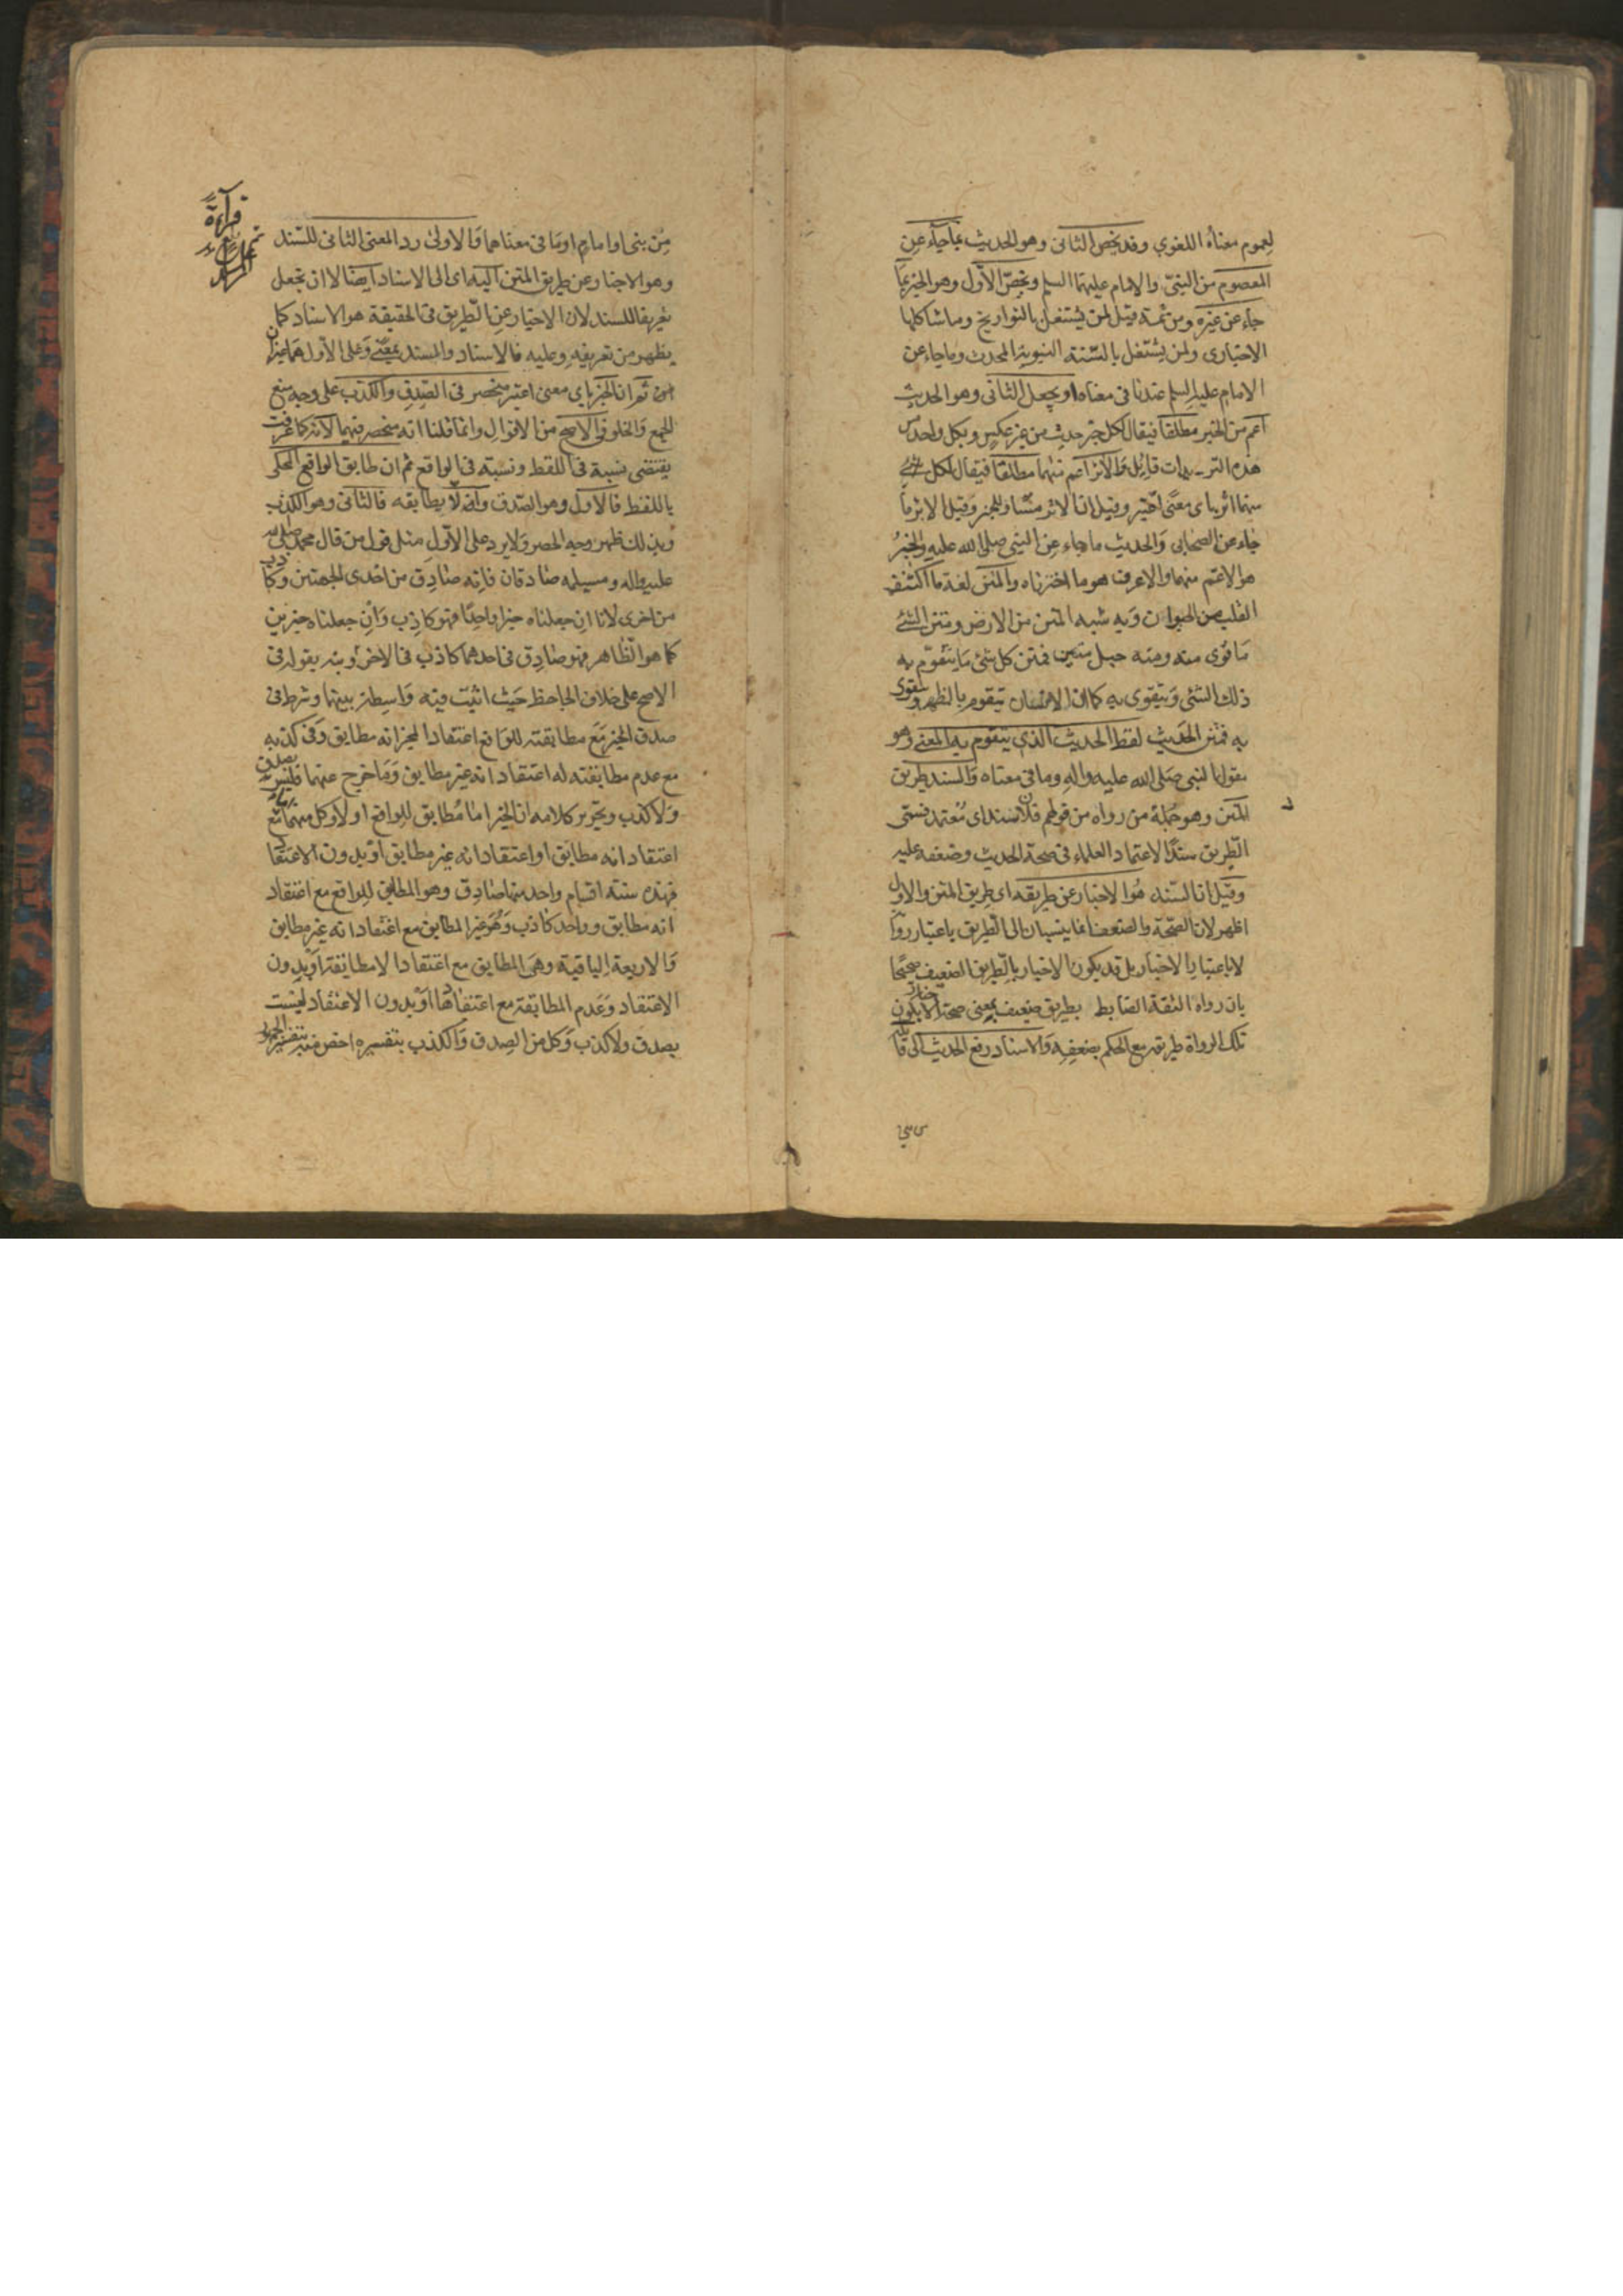 لعموم معناه اللغوي وقد يخص الثاني وهو الحديث بما جاء عن
المعصوم من النبي والامام عليهما السلم ويخص الاول وهو الخبر بما
جاء عن غيره ومن ثمة قيل لمن يشتغل بالتواريخ وما شاكلها
الاخباري ولمن يشتغل بالسنة النبوية المحدث وما جاء عن
الامام عليه السلم عندنا في معناه او يجعل الثاني وهو الحديث
اعم من الخبر مطلقا فيقال لكل خبر حديث من غير عكس وبكل واحد من
هذه الترديدات قائل والاثر اعم منهما مطلقا فيقال لكل
منهما اثر باي معنى اعتبر وقيل ان الاثر مساو للخبر وقيل الاثر ما
جاء عن الصحابى والحديث ما جاء عن النبي صلى الله عليه والخبر
هو الاعم منهما والاعرف هو ما اخترناه والمتن لغة ما اكتنف
الصلب من الحيوان وبه شبه المتن من الارض ومتن الشئ
ما قوى متنه ومنه حبل متين فمتن كل شئ ما يتقوم به
ذلك الشئ ويتقوى به كما ان الانسان يتقوم بالظهر ويتقوى
به فمتن الحديث لفظ الحديث الذي يتقوم به المعنى وهو
مقول النبي صلى الله عليه واله وما في معناه والسند طريق
المتن وهو جملة من رواه من قولهم فلان سند اى معتمد فسمى
الطريق سندا لاعتماد العلماء في صحة الحديث وضعفه عليه
وقيل ان السند هو الاخبار عن طريقه اى طريق المتن والاول
اظهر لان الصحة والضعف انما ينسبان الى الطريق باعتبار رواته
لا باعتبار الاخبار بل قد يكون الاخبار بالطريق الضعيف صحيحا
بان رواه الثقة الضابط بطريق ضعيف بمعنى صحة الاخبار بكون
تلك الرواة طريقه مع الحكم بضعفه والاسناد رفع الحديث الى قائله
من نبى او امام او ما في معناهما والاولى رد المعنى الثانى للسند
وهو الاخبار عن طريق المتن اليه اى الى الاسناد ايضا لا ان تجعل
تعريفا للسند لان الاخبار عن الطريق في الحقيقة هو الاسناد كما
يظهر من تعريفه وعليه فالاسناد والسند بمعنى وعلى الاول هما غيران
ثم ان الخبر باي معنى اعتبر منحصر في الصدق والكذب على وجه منع
الجمع والخلو في الاصح من الاقوال وانما قلنا انه منحصر فيهما لانه كما عرفت
يقتضى نسبة في اللفظ ونسبة في الواقع ثم ان طابق الواقع المحكى
باللفظ فالاول وهو الصدق وان لا يطابقه فالثانى وهو الكذب
وبذلك ظهر وجه الحصر ولا يرد على الاول مثل قول من قال محمد صلى الله
عليه واله ومسيلمه صادقان فانه صادق من احدى الجهتين وكاذب
من اخرى لانا ان جعلناه خبرا واحدا فهو كاذب وان جعلناه خبرين
كما هو الظاهر فهو صادق في احدهما كاذب في الاخر ونبه بقوله في
الاصح على خلاف الجاحظ حيث اثبت فيه واسطة بينهما وشرط في
صدق الخبر مع مطابقته للواقع اعتقاد المخبر انه مطابق وفي كذبه
مع عدم مطابقته له اعتقاد انه غير مطابق وما خرج عنهما فليس بصدق
ولا كذب وتحرير كلامه ان الخبر اما مطابق للواقع او لا وكل منهما مع
اعتقاد انه مطابق او اعتقاد انه غير مطابق او بدون الاعتقاد
فهذه ستة اقسام واحد منها صادق وهو المطابق للواقع مع اعتقاد
انه مطابق وواحد كاذب وهو غير المطابق مع اعتقاد انه غير مطابق
والاربعة الباقية وهى المطابق مع اعتقاد اللا مطابقة او بدون
الاعتقاد وعدم المطابقة مع اعتقادها او بدون الاعتقاد ليست
بصدق ولا كذب وكل من الصدق والكذب بتفسيره اخص منه بتفسير الجمهور